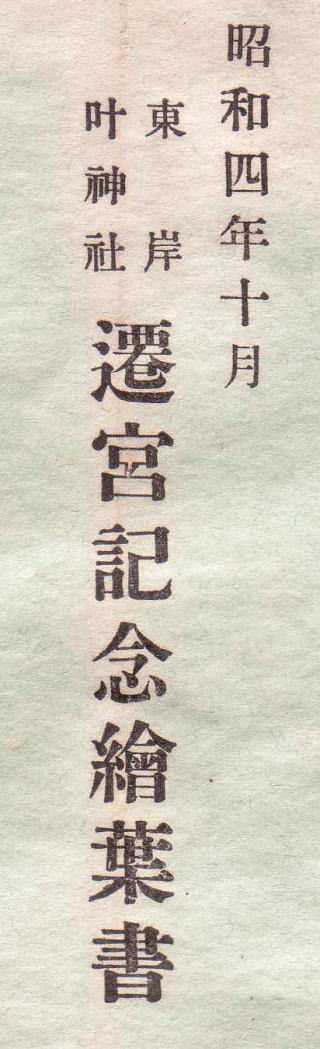 昭和四年十月
東岸
叶神社
遷宮記念繪葉書